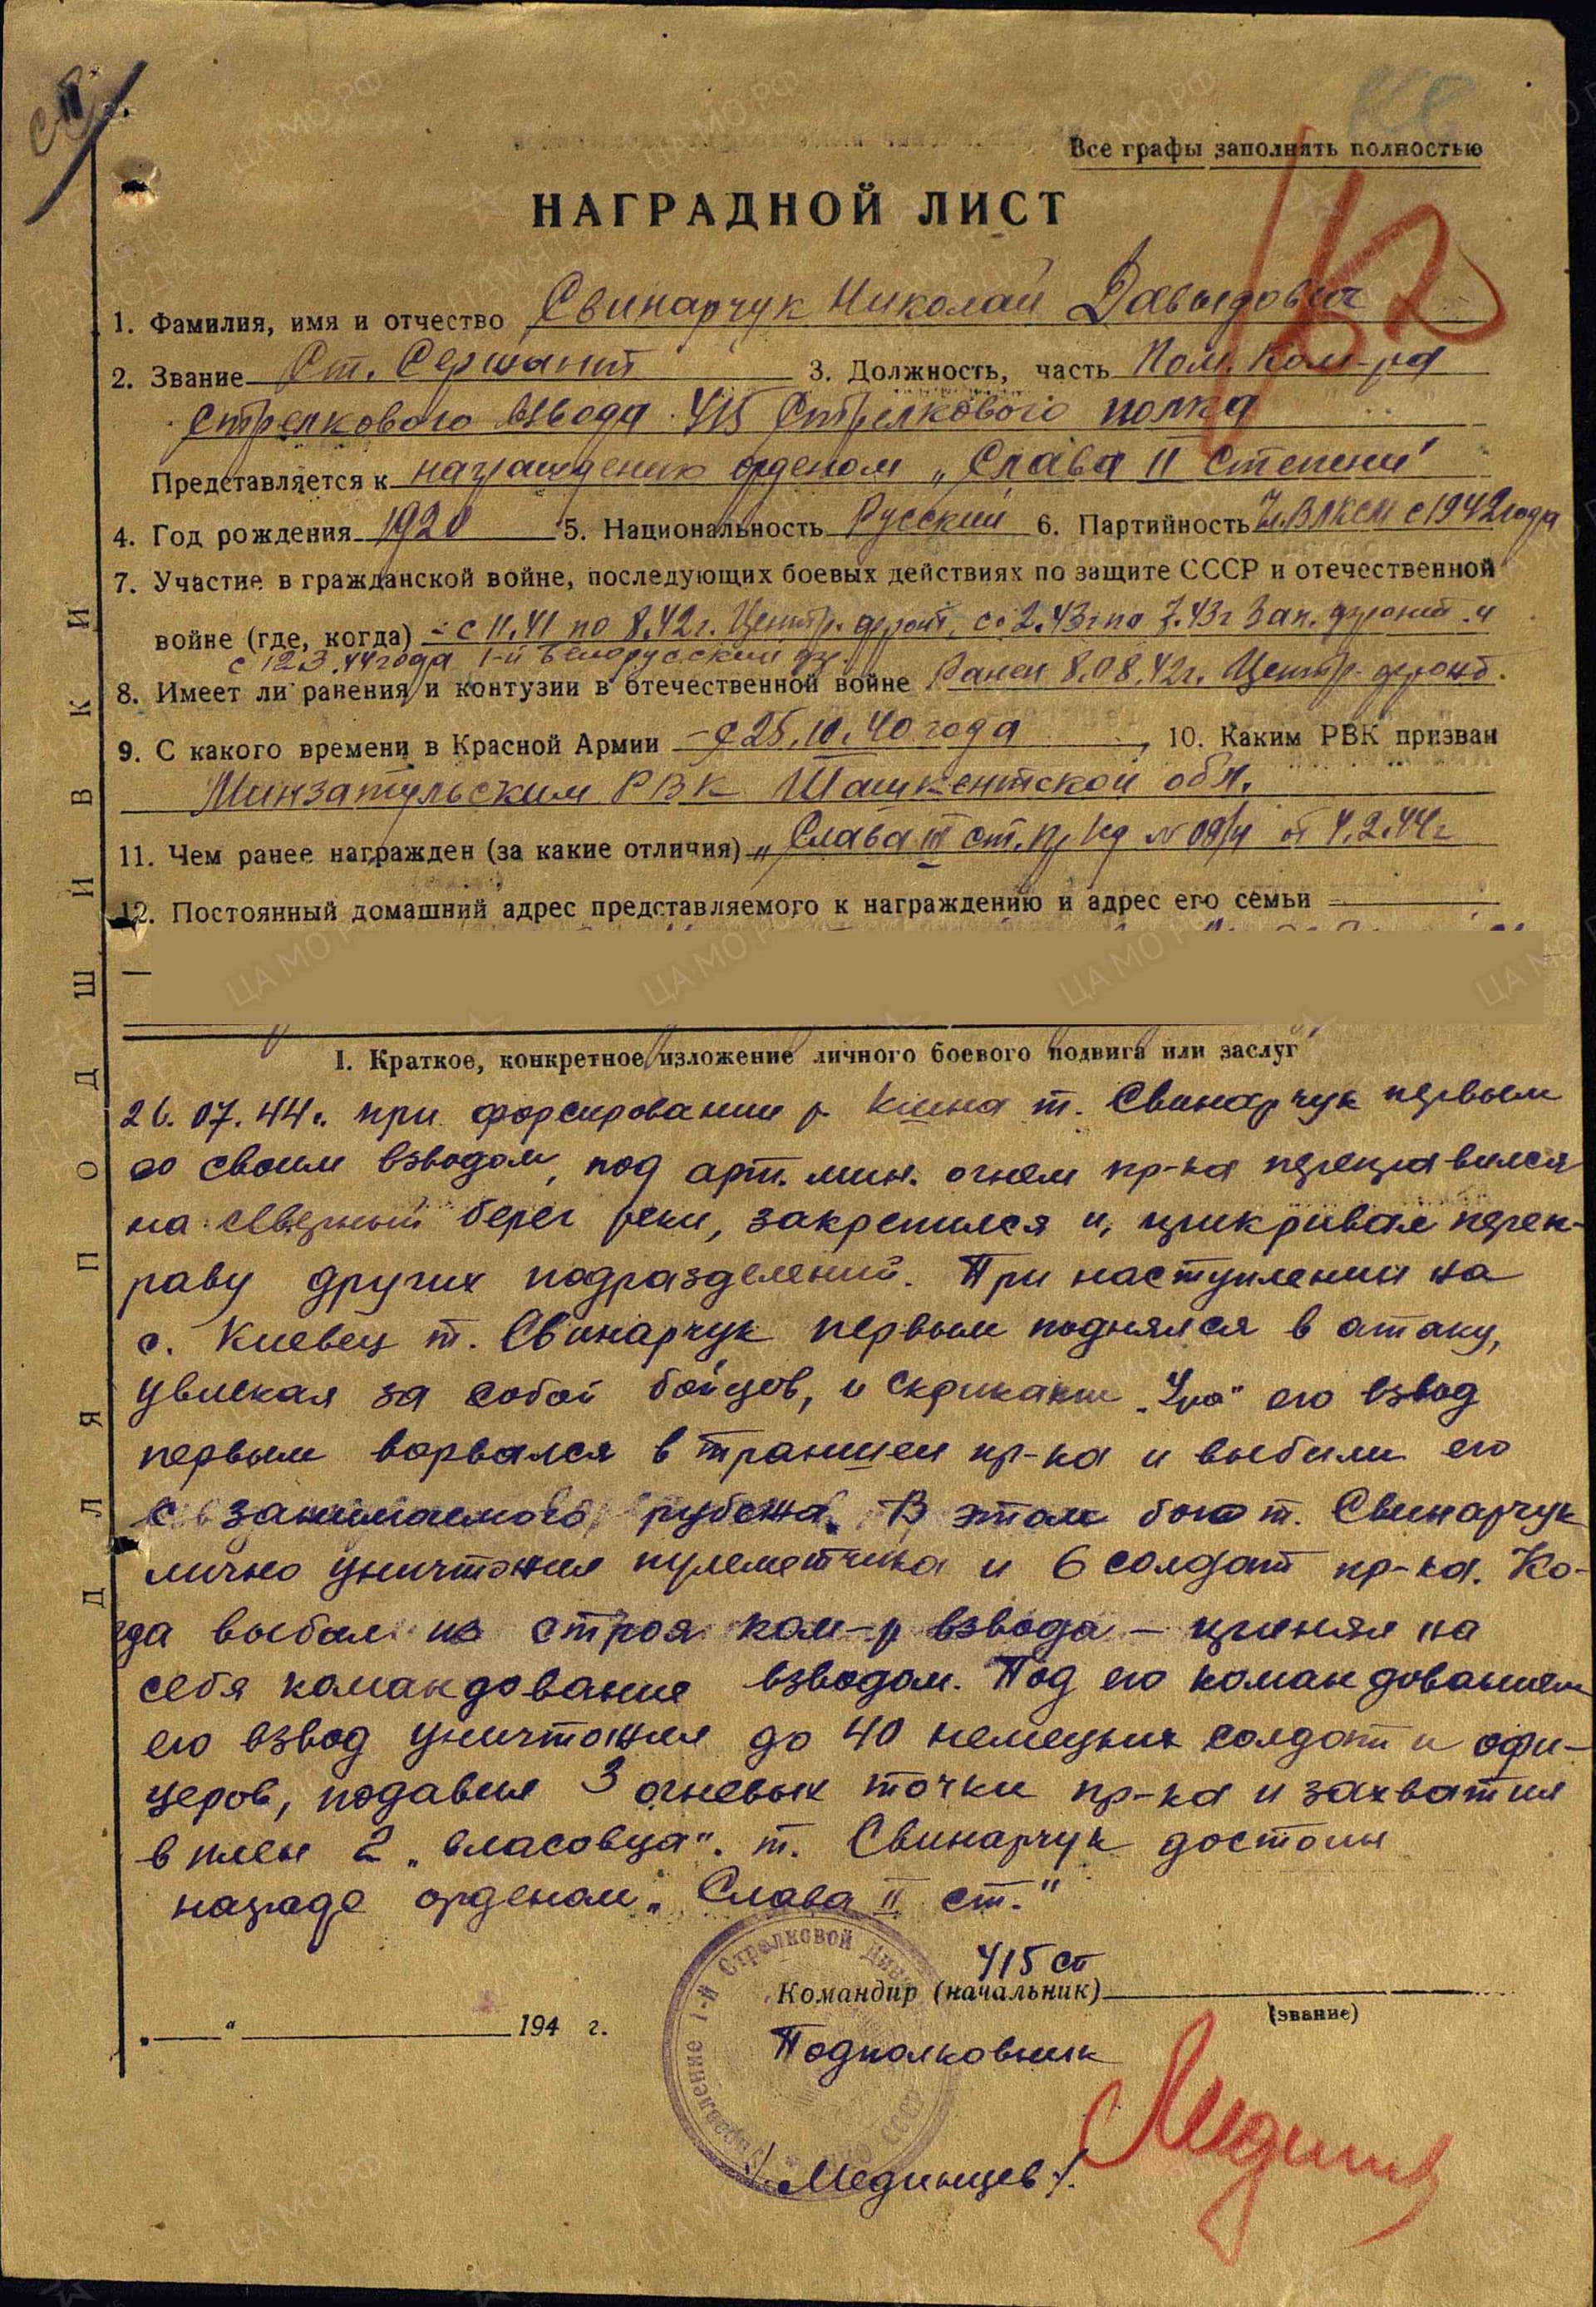 Все графы заполнять полностью
НАГРАДНОЙ ЛИСТ
1. Фамилия, имя и отчество Свинарчук Николай Давыдович
2. Звание Ст. Сержант 3. Должность, часть Пом. Ком-ра
стрелкового взвода 415 Стрелкового полка
Представляется к награждению орденом „Слава II степени"
4. Год рождения 1920 5. Национальность Русский 6. Партийность Чл. ВЛКСМ с 1942 года
7. Участие в гражданской войне, последующих боевых действиях по защите СССР и отечественной
войне (где, когда) - с 11.41 по 8.42г. Центр. фронт, с 2.43г по 7.43г Зап. фронт и
с 12.3.44 года 1-й Белорусский фр.
8. Имеет ли ранения и контузии в отечественной войне Ранен 8.08.42г. Центр. фронт.
9. С какого времени в Красной Армии - с 25.10.40 года, 10. Каким РВК призван
РВК Ташкентской обл.
11. Чем ранее награжден (за какие отличия) „Слава III ст. от 4.2.44г
12. Постоянный домашний адрес представляемого к награждению и адрес его семьи
1. Краткое, конкретное изложение личного боевого подвига или заслуг
26.07.44г. при форсировании р. т. Свинарчук первым
со своим взводом, под арт. мин. огнем пр-ка переправился
на северный берег реки, закрепился и, прикривал переп-
раву других подразделений. При наступлении на
с. Киевец т. Свинарчук первым поднялся в атаку,
увлекая за собой бойцов, и с криками „Ура" его взвод
первым ворвался в траншеи пр-ка и выбили его
с занимаемого рубежа. В этом бою т. Свинарчук
лично уничтожил пулеметчика и 6 солдат пр-ка. Ко-
гда выбыл из строя ком-р взвода - принял на
себя командование взводом. Под его командованием
его взвод уничтожил до 40 немецких солдат и офи-
церов, подавил 3 огневых точки пр-ка и захватил
в плен 2 „власовца". т. Свинарчук достоин
награде орденом „Слава II ст."
415 сп
Командир (начальник)
(звание)
„ " 194 г.
Подполковник
/Мединцев/.
Управление 1-й Стрелковой Дивизии
НКО СССР
ДЛЯ ПОДШИВКИ